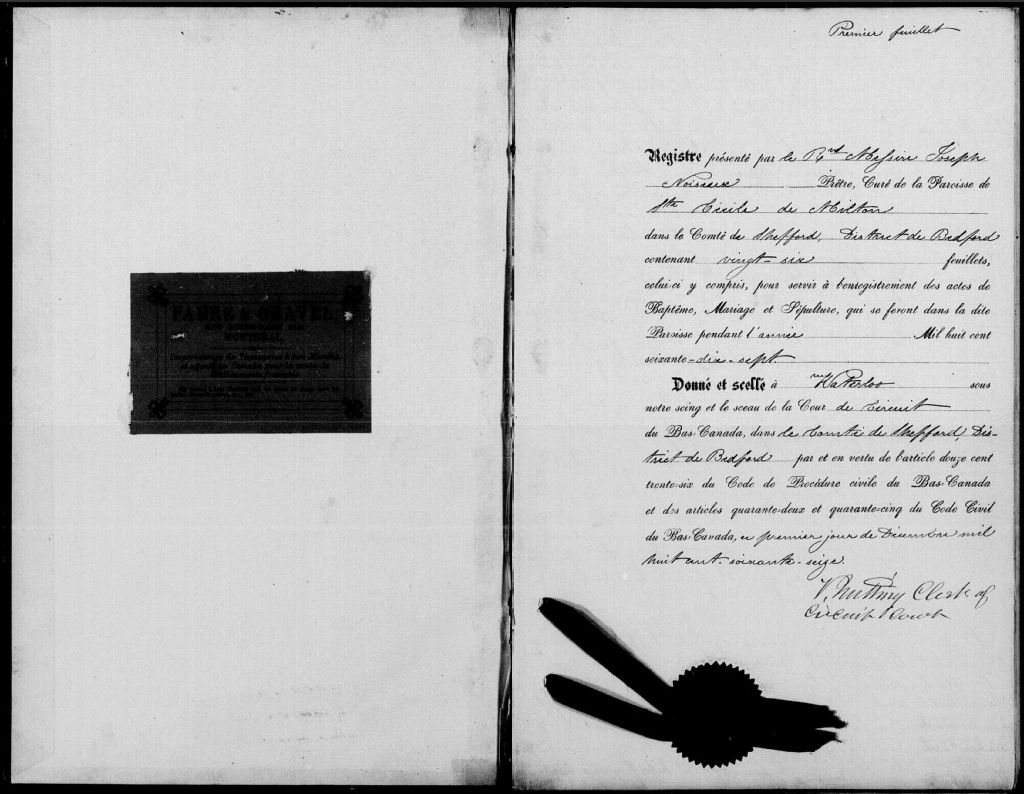 FABRE & GRAVEL
MONTREAL
Premier feuillet
Registre présenté par le Rvd Messire Joseph
Noiseux Prêtre, Curé de la Paroisse de
Ste Cécile de Milton
dans le Comté de Shefford, District de Bedford
contenant vingt-six feuillets,
celui-ci y compris, pour servir à l'enregistrement des actes de
Baptême, Mariage et Sépulture, qui se feront dans la dite
Paroisse pendant l'année Mil huit cent
soixante-dix-sept
Donné et scellé à Waterloo sous
notre seing et le sceau de la Cour de Circuit
du Bas-Canada, dans le Comté de Shefford, Dis-
trict de Bedford par et en vertu de l'article douze cent
trente-six du Code de Procédure civile du Bas-Canada
et des articles quarante-deux et quarante-cinq du Code Civil
du Bas-Canada, ce premier jour de Décembre mil
huit cent soixante-seize.
Clerk of
Circuit Court